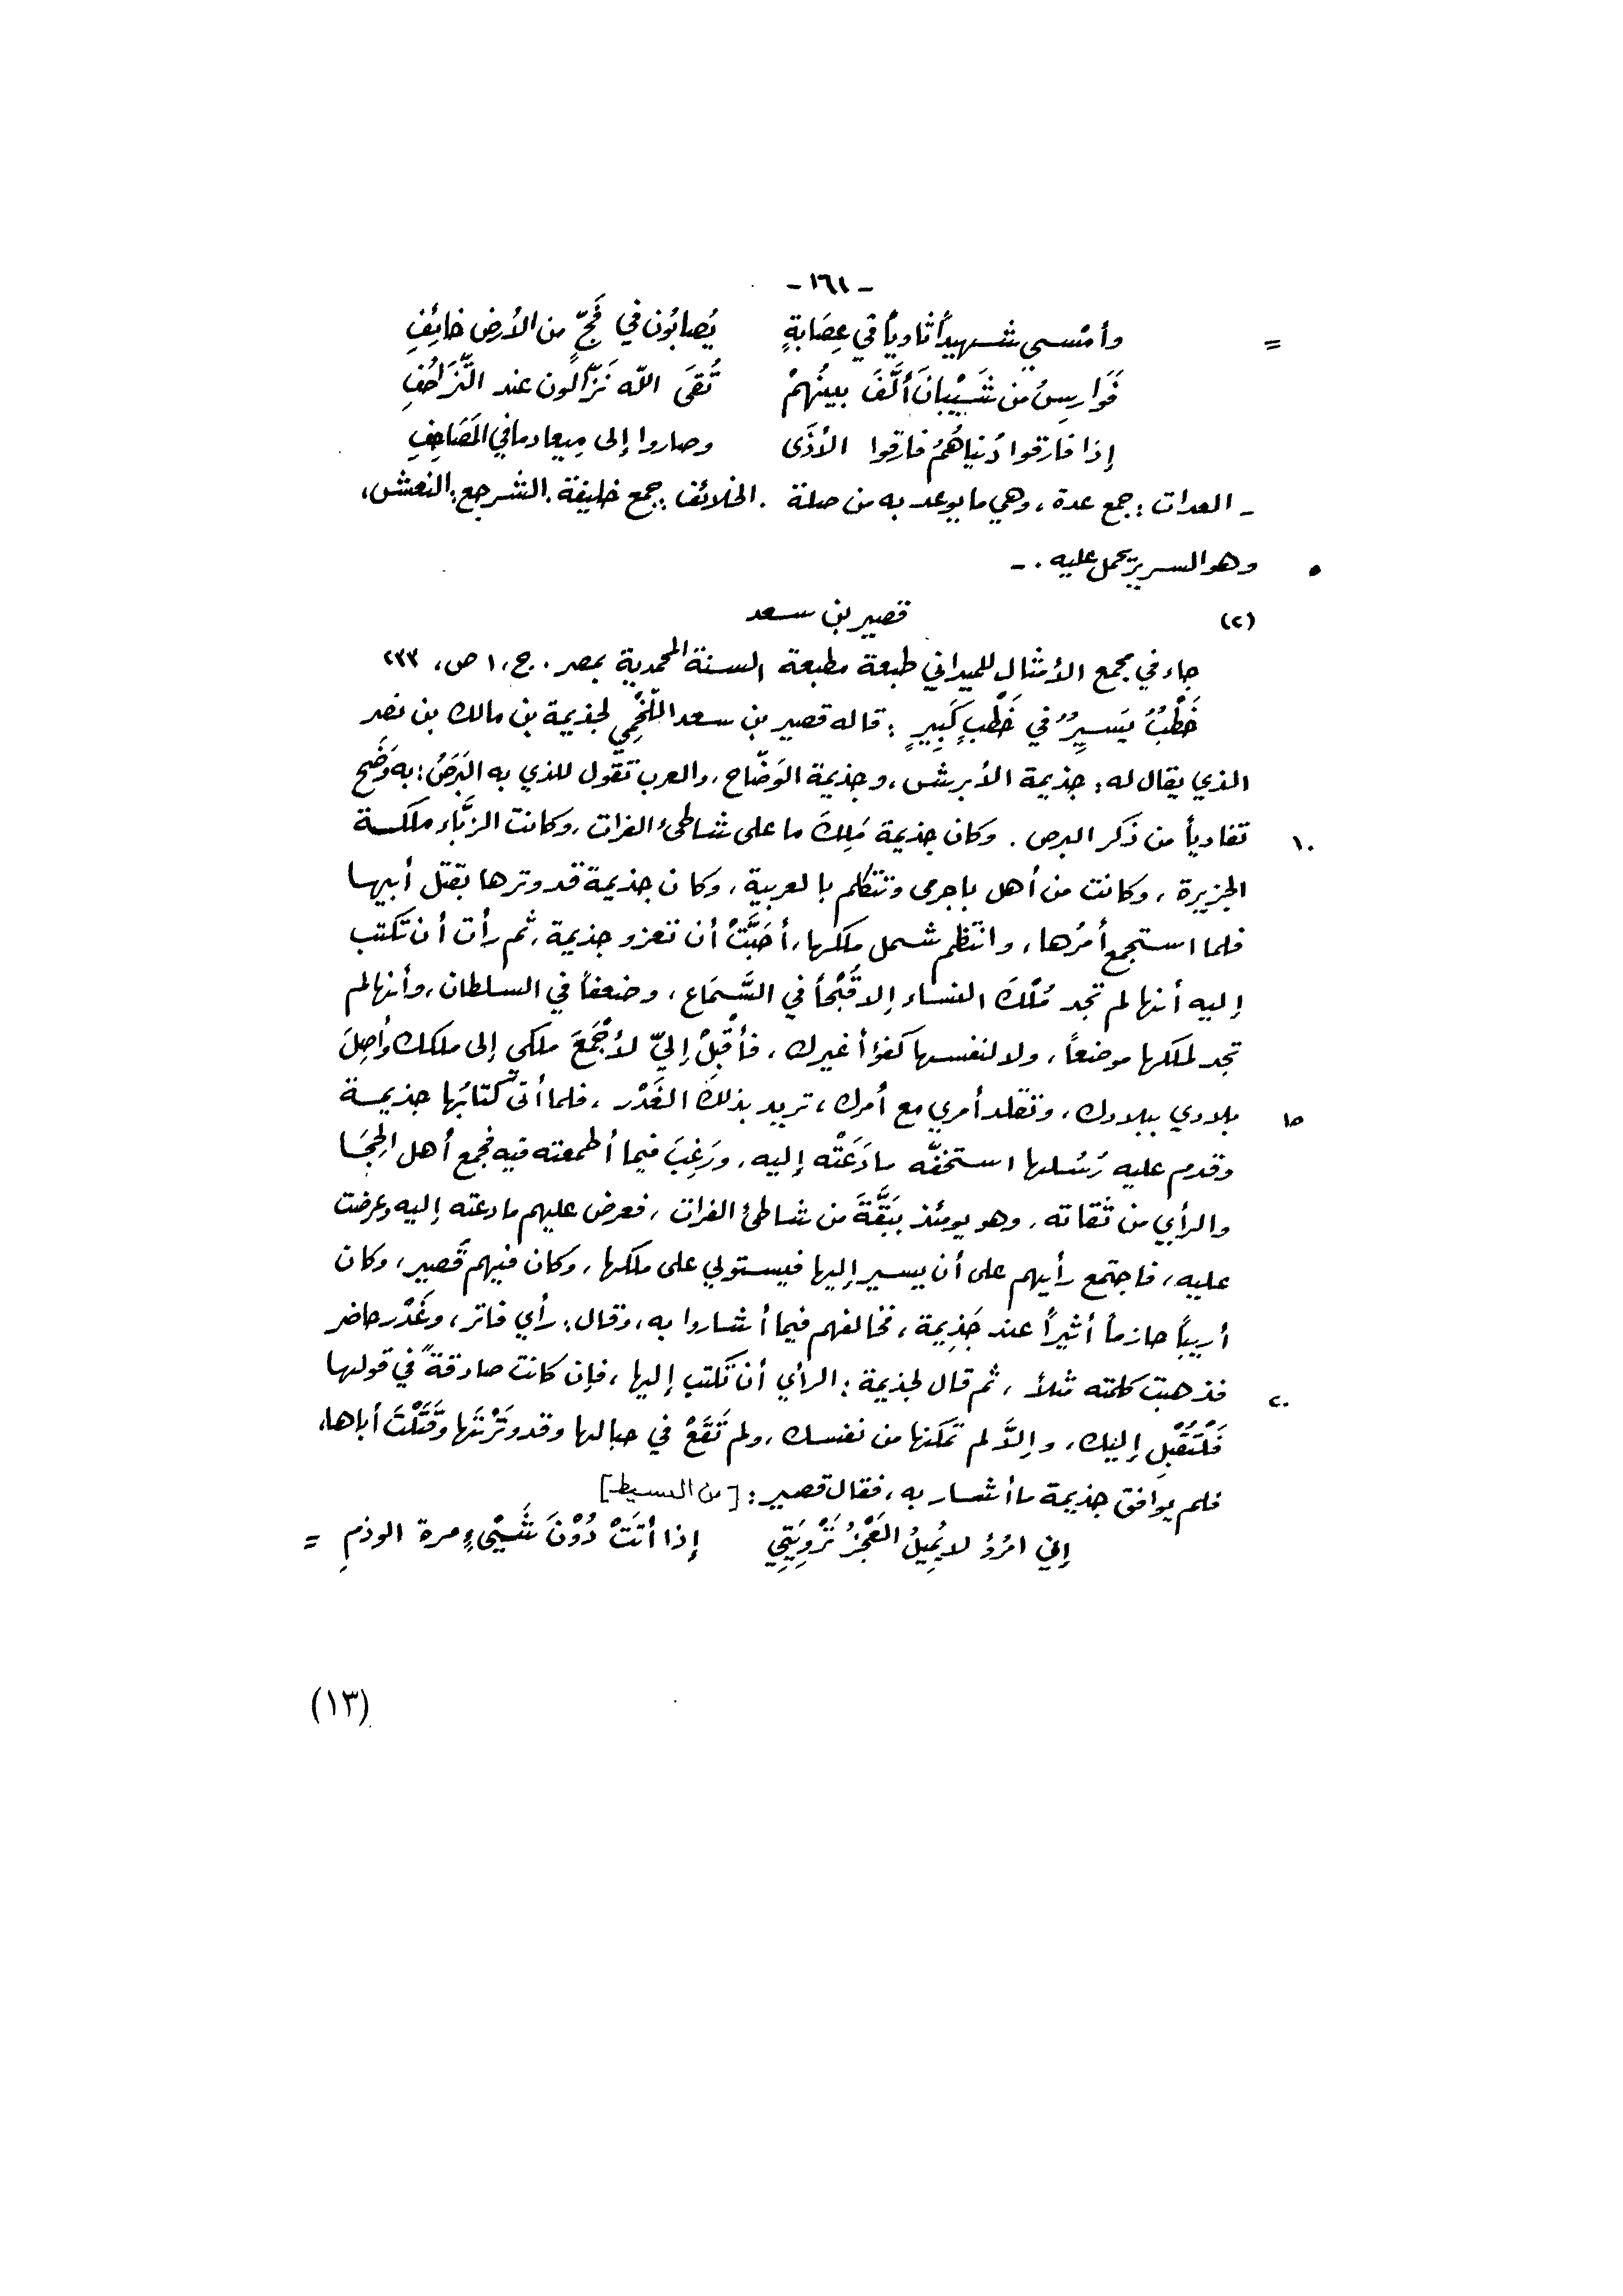 - ١٦١ -
= وأمْسي شهيداً ثاوياً في عِصَابةٍ يُصابُون في فَجٍّ من الأرض خائِفِ
فَوَارِسُ من شَيْبَانَ ألَّفَ بينُهمْ تُقَى الله نَزَّالون عند التَّزَاحُفِ
إذا فارقوا دُنياهُمُ فارقوا الأذَى وصاروا إلى مِيعاد ما في المَصَاحِفِ
- العدات : جمع عدة ، وهي ما يوعد به من صلة . الخلائف : جمع خليفة . الشرجع : النعش ،
٥ وهو السرير يحمل عليه . -
(٢) قصير بن سعد
جاء في مجمع الأمثال للميداني طبعة مطبعة السنة المحمدية بمصر . ج ، ١ ص ، ٢٣٣
خَطْبٌ يَسيرٌ في خَطْبٍ كَبِيرٍ : قاله قصير بن سعد اللَّخْمِي لجذيمة بن مالك بن نصر
الذي يقال له : جذيمة الأبرش ، وجذيمة الوَضّاح ، والعرب تقول للذي به البَرَصُ : به وَضَحٌ
١٠ تفادياً من ذكر البرص . وكان جذيمة مَلِكَ ما على شاطئ الفرات ، وكانت الزبَّاء ملكسة
الجزيرة ، وكانت من أهل باجرمى وتتكلم بالعربية ، وكان جذيمة قد وترها بقتل أبيها
فلما استجمع أمرُها ، وانتظم شمل ملكها ، أحَبَّتْ أن تغزو جذيمة ، ثم رأت أن تكتب
إليه أنها لم تجد مُلْكَ النساء إلا قُبْحاً في السَّمَاع ، وضعفاً في السلطان ، وأنها لم
تجد لملكها موضعاً ، ولا لنفسها كفؤاً غيرك ، فأقْبِلْ إليّ لأجْمَعَ ملكي إلى ملكك وأصِلَ
١٥ بلادي ببلادك ، وتقلد أمري مع أمرك ، تريد بذلك الغَدْر ، فلما أتى كتابُها جذيمسة
وقدم عليه رُسُلها استخفّه ما دَعَتْه إليه ، ورَغِبَ فيما أطمعته فيه فجمع أهل الحِجَا
والرأي من ثقاته ، وهو يومئذ ببَقَّةَ من شاطئ الفرات ، فعرض عليهم ما دعته إليه وعرضت
عليه ، فاجتمع رأيهم على أن يسير إليها فيستولي على ملكها ، وكان فيهم قَصير ، وكان
أريباً حازماً أثيراً عند جَذِيمة ، فخالفهم فيما أشاروا به ، وقال : رأي فاتر ، وغَدْر حاضر
٢٠ فذهبت كلمته مثلاً ، ثم قال لجذيمة : الرأي أن تكتب إليها ، فإن كانت صادقةً في قولها
فَلْتُقْبِل إليك ، وإلاَّ لم تمكنها من نفسك ، ولم تَقَعْ في حبالها وقد وَتَرْتَها وقَتَلْتَ أباها ،
فلم يوافق جذيمة ما أشار به ، فقال قصير : [من البسيط]
إني امرُؤ لا يُمِيلُ العَجْزُ تَرْوِيَتِي إذا أتَتْ دُوْنَ شَيْىءٍ مرة الوذمِ =
(١٣)